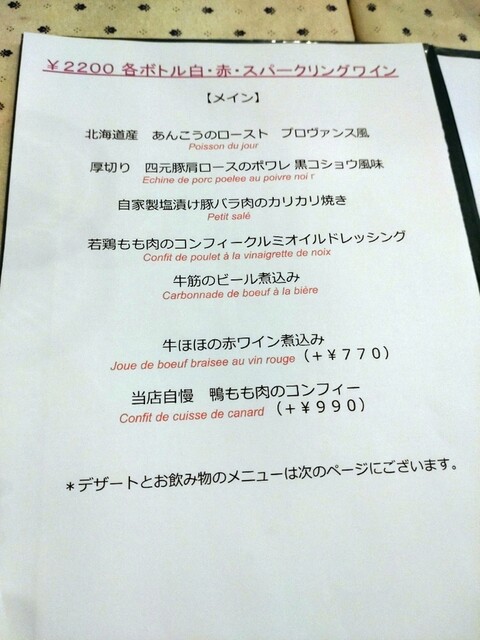 ￥2200 各ボトル白・赤・スパークリングワイン
【メイン】
北海道産　あんこうのロースト　プロヴァンス風
Poisson du jour
厚切り　四元豚肩ロースのポワレ 黒コショウ風味
Echine de porc poelee au poivre noi r
自家製塩漬け豚バラ肉のカリカリ焼き
Petit salé
若鶏もも肉のコンフィークルミオイルドレッシング
Confit de poulet à la vinaigrette de noix
牛筋のビール煮込み
Carbonnade de boeuf à la bière
牛ほほの赤ワイン煮込み
Joue de boeuf braisee au vin rouge（＋￥７７０）
当店自慢　鴨もも肉のコンフィー
Confit de cuisse de canard（＋￥９９０）
＊デザートとお飲み物のメニューは次のページにございます。